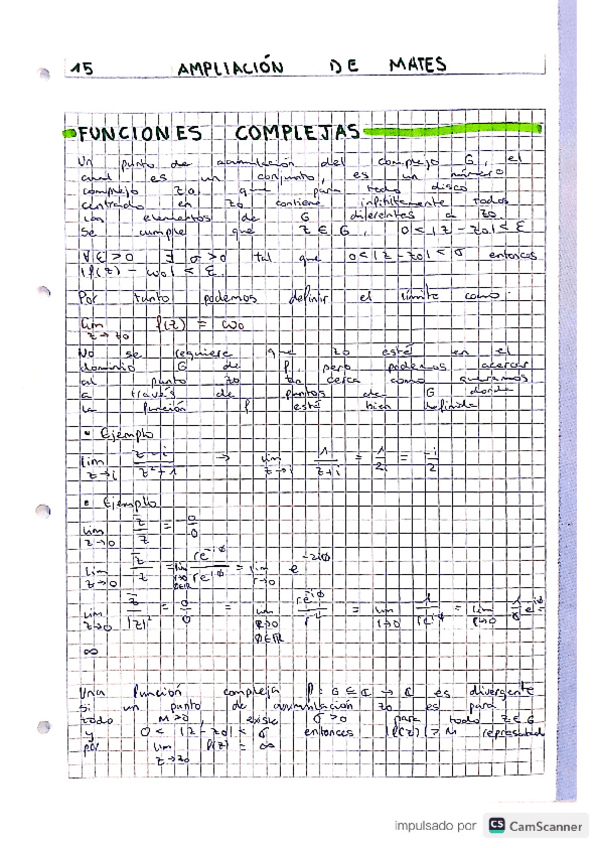 15 AMPLIACIÓN DE MATES
FUNCIONES COMPLEJAS
Un punto de acumulación del complejo G, el
cual es un conjunto, es un número
complejo z0, que para todo disco
centrado en z0 contiene infititemente todos
los elementos de G diferentes a z0
se cumple que z ∈ G, 0 < |z - z0| < ε
∀ ε > 0 ∃ σ > 0 tal que 0 < |z - z0| < σ entonces
|f(z) - w0| < ε.
Por tanto podemos definir el límite como:
lim z→z0 f(z) = w0
No se requiere que z0 esté en el
dominio G de f, pero podemos acercar
al punto z0 tan cerca como queramos
a través de puntos de G donde
la función f esté bien definida
• Ejemplo
lim z→i (z-i)/(z²+1) → lim z→i 1/(z+i) = 1/2i = -i/2
• Ejemplo
lim z→0 z̄/z = 0/0
lim z→0 z̄/z = lim r→0 re^-iϕ / re^iϕ = lim r→0 e^-2iϕ
lim z→0 z̄/|z|² = 0/0 = lim re^-iϕ / r² = lim r→0 1/re^iϕ = lim r→0 1/r e^-iϕ =
∞
Una función compleja f: G ⊆ ℂ → ℂ es divergente
si un punto de acumulación z0 es para
todo M>0, existe σ>0 para todo z∈G
y 0 < |z - z0| < σ entonces |f(z)| > M representad
por lim z→z0 f(z) = ∞
impulsado por CS CamScanner